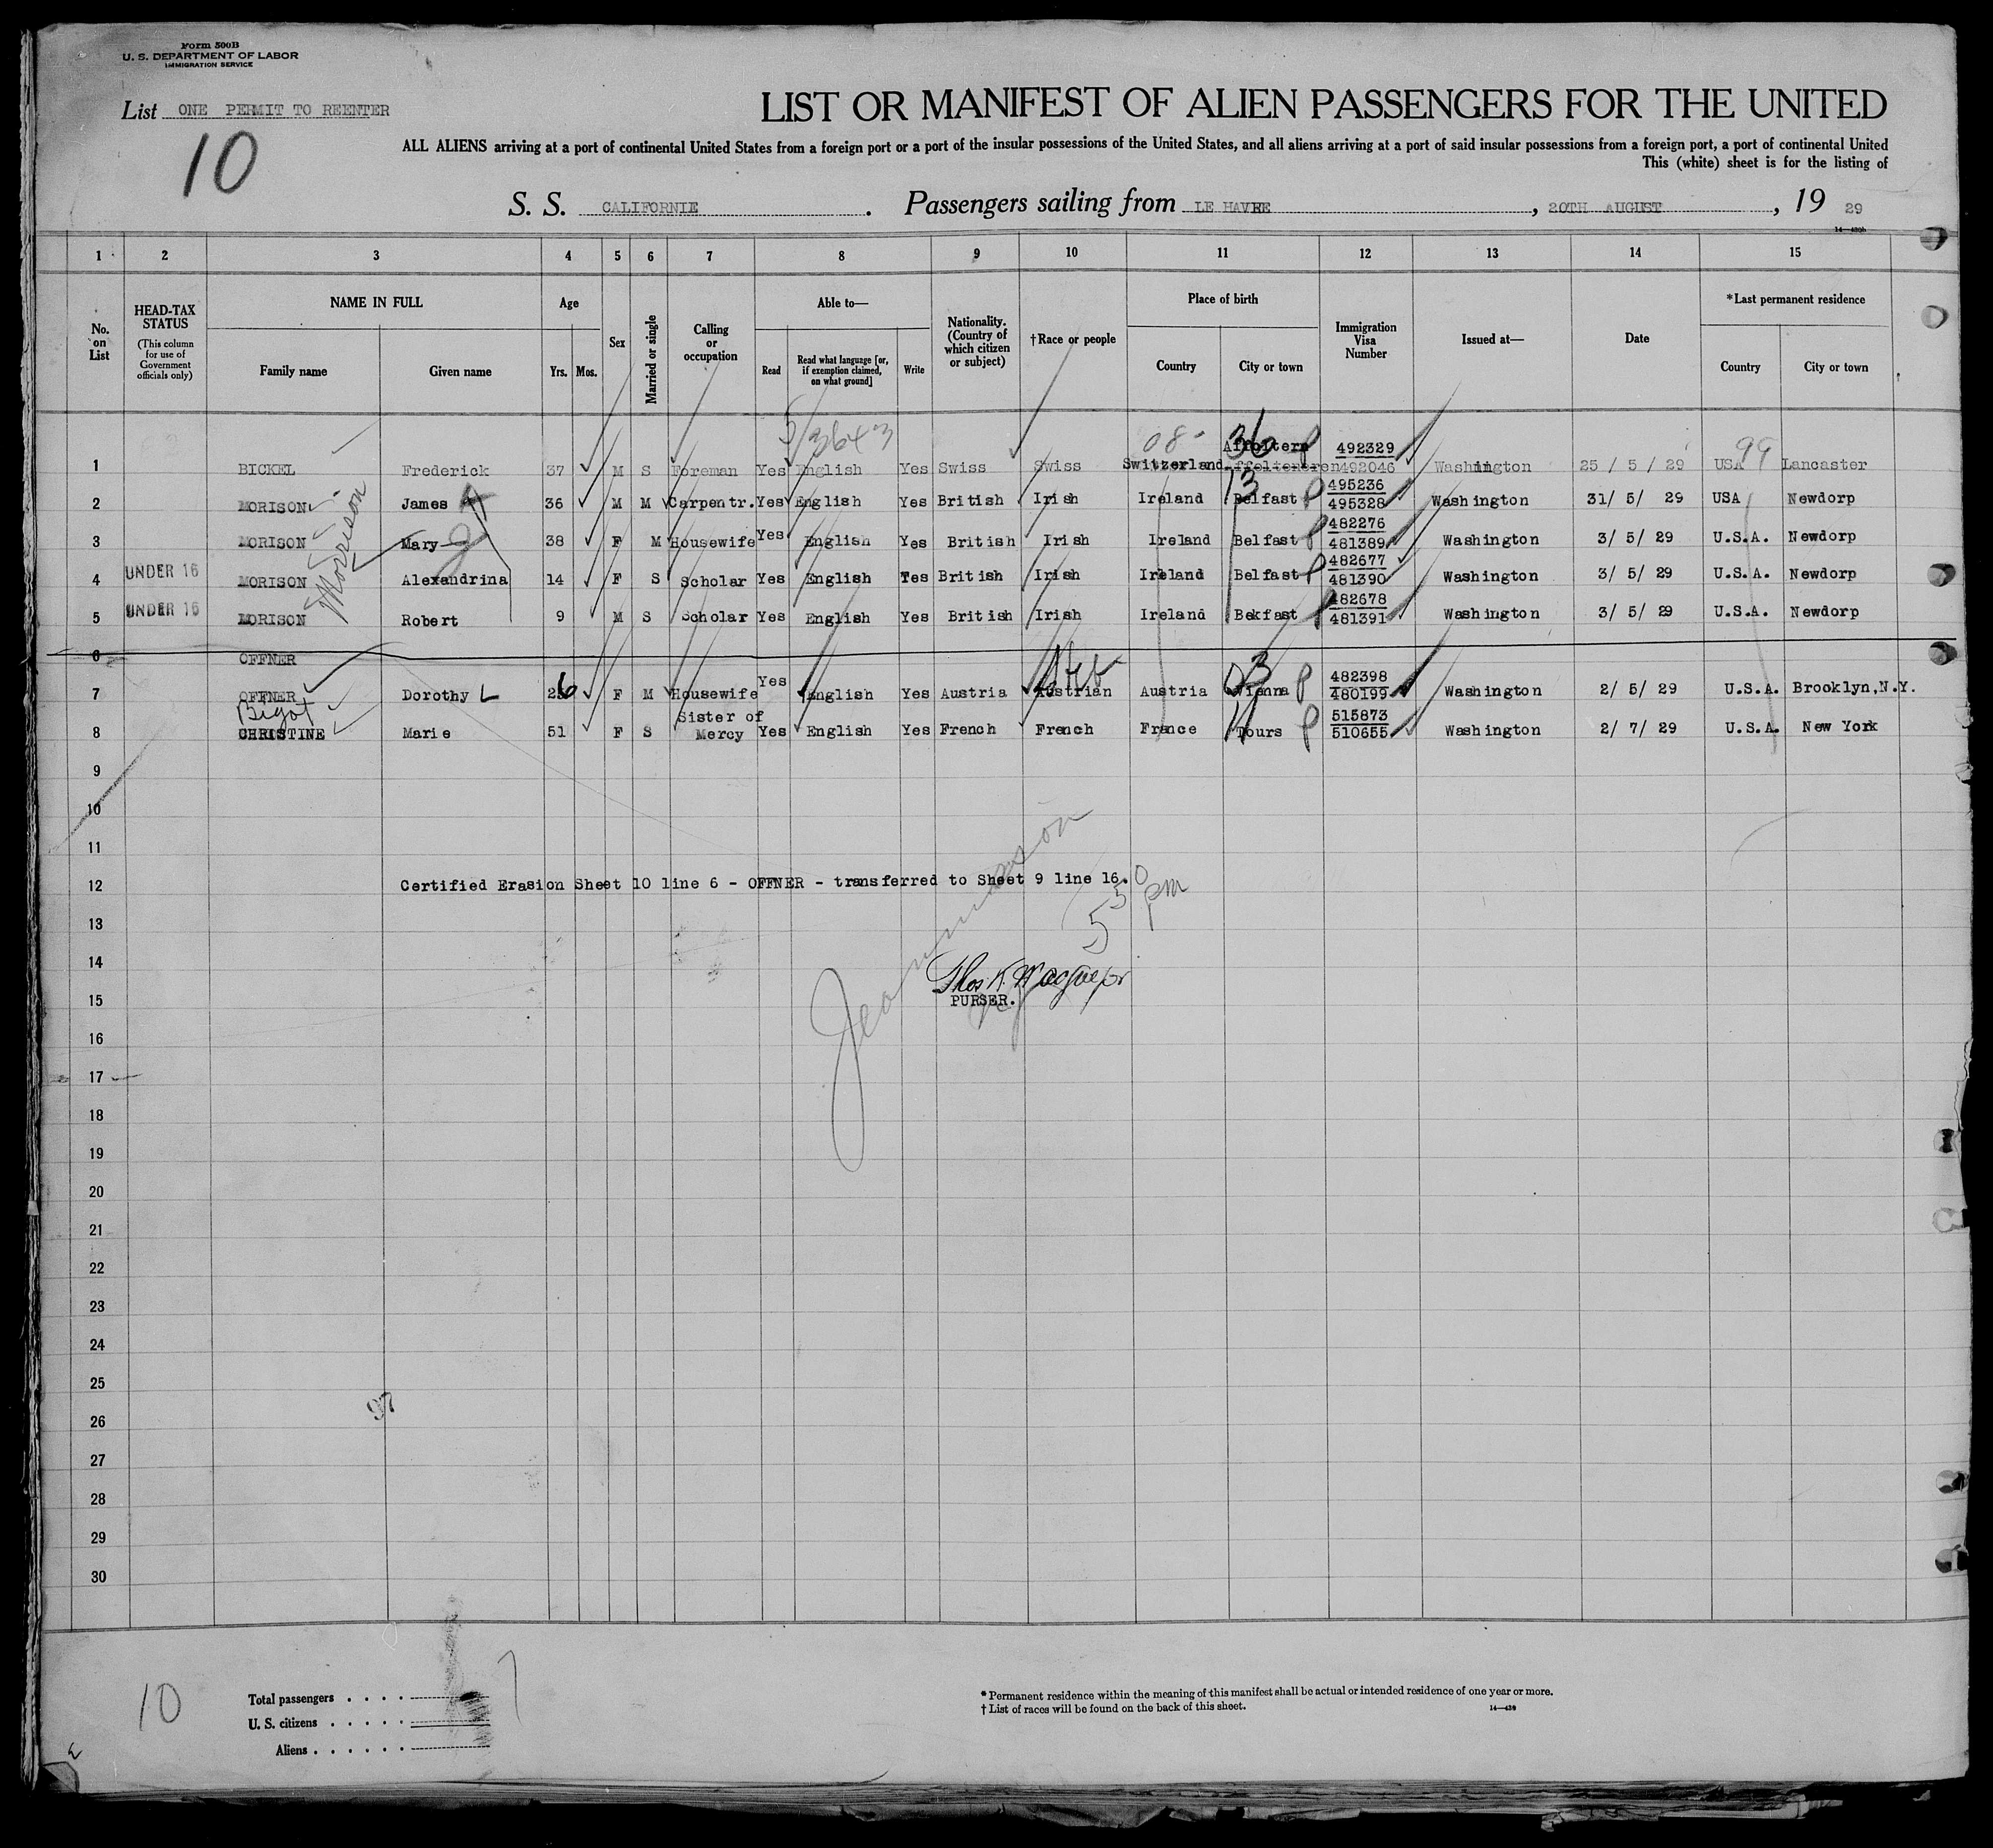 Form 500B
U. S. DEPARTMENT OF LABOR
IMMIGRATION SERVICE
List ONE PERMIT TO REENTER
10
LIST OR MANIFEST OF ALIEN PASSENGERS FOR THE UNITED
ALL ALIENS arriving at a port of continental United States from a foreign port or a port of the insular possessions of the United States, and all aliens arriving at a port of said insular possessions from a foreign port, a port of continental United
This (white) sheet is for the listing of
S. S. CALIFORNIE . Passengers sailing from LE HAVRE , 20TH AUGUST , 19 29
14-430b
1 2 3 4 5 6 7 8 9 10 11 12 13 14 15
No. on List
HEAD-TAX STATUS
(This column for use of Government officials only)
NAME IN FULL
Family name Given name
Age
Yrs. Mos.
Sex
Married or single
Calling or occupation
Able to—
Read Read what language [or, if exemption claimed, on what ground] Write
Nationality. (Country of which citizen or subject)
†Race or people
Place of birth
Country City or town
Immigration Visa Number
Issued at—
Date
*Last permanent residence
Country City or town
5/3643 08- 36 99
Affoltern 492329
1 BICKEL Frederick 37 M S Foreman Yes English Yes Swiss Swiss Switzerland 492046 Washington 25 / 5 / 29 USA Lancaster
13 495236
2 MORISON James 36 M M Carpentr. Yes English Yes British Irish Ireland Belfast 495328 Washington 31/ 5/ 29 USA Newdorp
Morrison
482276
3 MORISON Mary 38 F M Housewife Yes English Yes British Irish Ireland Belfast 481389 Washington 3/ 5/ 29 U.S.A. Newdorp
482677
4 UNDER 16 MORISON Alexandrina 14 F S Scholar Yes English Yes British Irish Ireland Belfast 481390 Washington 3/ 5/ 29 U.S.A. Newdorp
482678
5 UNDER 16 MORISON Robert 9 M S Scholar Yes English Yes British Irish Ireland Bekfast 481391 Washington 3/ 5/ 29 U.S.A. Newdorp
6 OFFNER
Heb 03 482398
7 OFFNER Dorothy L 26 F M Housewife Yes English Yes Austria Austrian Austria Vienna 480199 Washington 2/ 5/ 29 U.S.A. Brooklyn,N.Y.
Bigot 11 515873
8 CHRISTINE Marie 51 F S Sister of Mercy Yes English Yes French French France Tours 510655 Washington 2/ 7/ 29 U.S.A. New York
9
10
11
12 Certified Erasion Sheet 10 line 6 - OFFNER - transferred to Sheet 9 line 16.
5 50 pm
13
14
15 PURSER.
16
17
18
19
20
21
22
23
24
25
26
97
27
28
29
30
10
Total passengers . . . .
U. S. citizens . . . . .
Aliens . . . . . .
* Permanent residence within the meaning of this manifest shall be actual or intended residence of one year or more.
† List of races will be found on the back of this sheet.
14-430